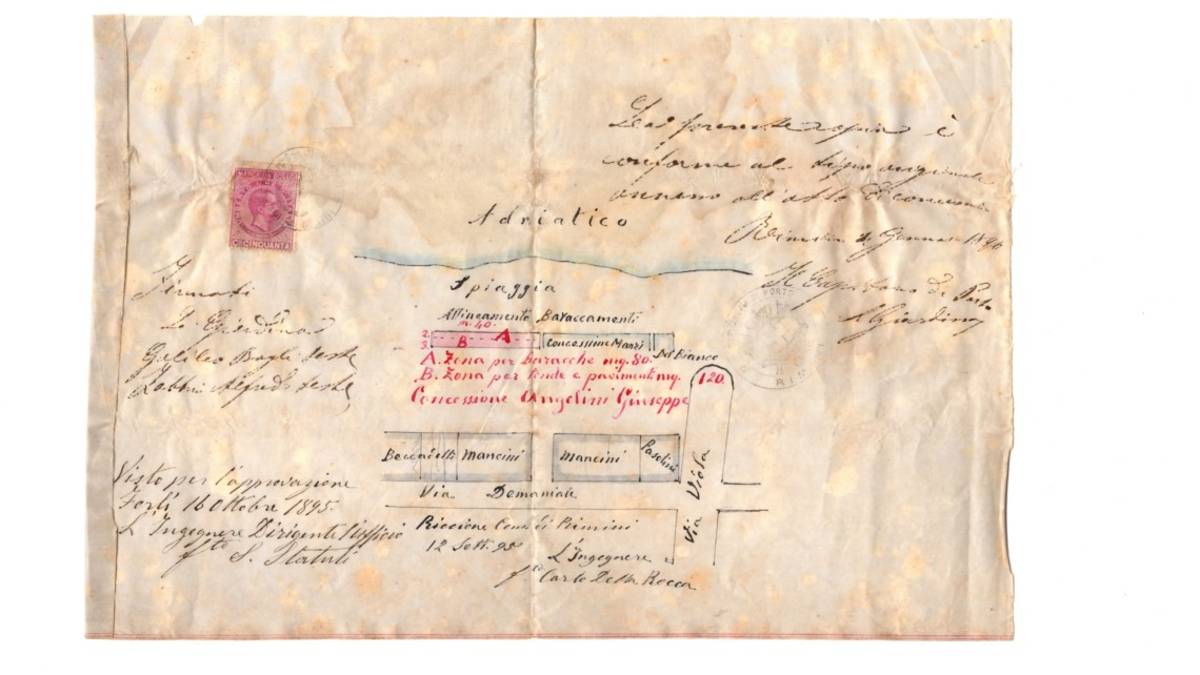 La presente copia è
conforme al tipo originale
annesso all'atto di concessione
Rimini Gennaio 1896
Il Capitano di Porto
CINQUANTA
Adriatico
Spiaggia
Allineamento Baraccamenti
m. 40.
2. A
3. B
Concessione Masri
Del Bianco
A. Zona per baracche mq. 80.
B. Zona per tende e pavimenti mq. 120.
Concessione Angelini Giuseppe
Firmati
Galileo teste
Alfredo teste
Mancini
Mancini
Paolini
Via Demaniale
Via Viola
Via Viola
Visto per l'approvazione
Forlì 16 Ottobre 1895.
L'Ingegnere Dirigente l'ufficio
fto S. Statuti
Riccione Comne di Rimini
12 Sett. 95
L'Ingegnere
fto Carlo Della Rocca